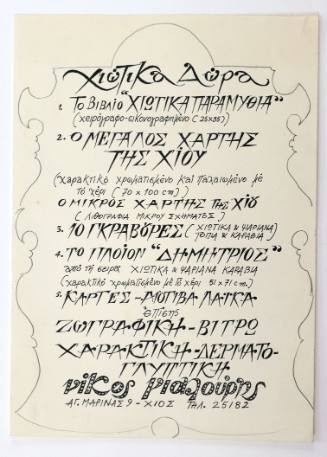 Χιώτικα Δώρα
1. ΤΟ ΒΙΒΛΙΟ "ΧΙΩΤΙΚΑ ΠΑΡΑΜΥΘΙΑ"
(χειρόγραφο-εικονογραφημένο (25x35)
2. Ο ΜΕΓΑΛΟΣ ΧΑΡΤΗΣ
ΤΗΣ ΧΙΟΥ
(χαρακτικό χρωματισμένο και παλαιωμένο με
το χέρι (70 x 100 cm)
Ο ΜΙΚΡΟΣ ΧΑΡΤΗΣ ΤΗΣ ΧΙΟΥ
(ΛΙΘΟΓΡΑΦΙΑ ΜΙΚΡΟΥ ΣΧΗΜΑΤΟΣ)
3. 10 ΓΚΡΑΒΟΥΡΕΣ (ΧΙΩΤΙΚΑ ΨΑΡΙΑΝΑ
ΤΟΠΙΑ ΚΑΡΑΒΙΑ)
4. ΤΟ ΠΛΟΙΟΝ "ΔΗΜΗΤΡΙΟΣ"
από τη σειρα ΧΙΩΤΙΚΑ ΨΑΡΙΑΝΑ ΚΑΡΑΒΙΑ
(χαρακτικό χρωματισμένο με το χέρι 51 x 71 cm)
5. ΚΑΡΤΕΣ-ΜΟΤΙΒΑ ΛΑΪΚΑ
επίσης
ΖΩΓΡΑΦΙΚΗ-ΒΙΤΡΩ
ΧΑΡΑΚΤΙΚΗ-ΔΕΡΜΑΤΟ-
ΓΛΥΠΤΙΚΗ
νίκος γιαλούρης
ΑΓ. ΜΑΡΙΝΑΣ 9-ΧΙΟΣ ΤΗΛ. 25182